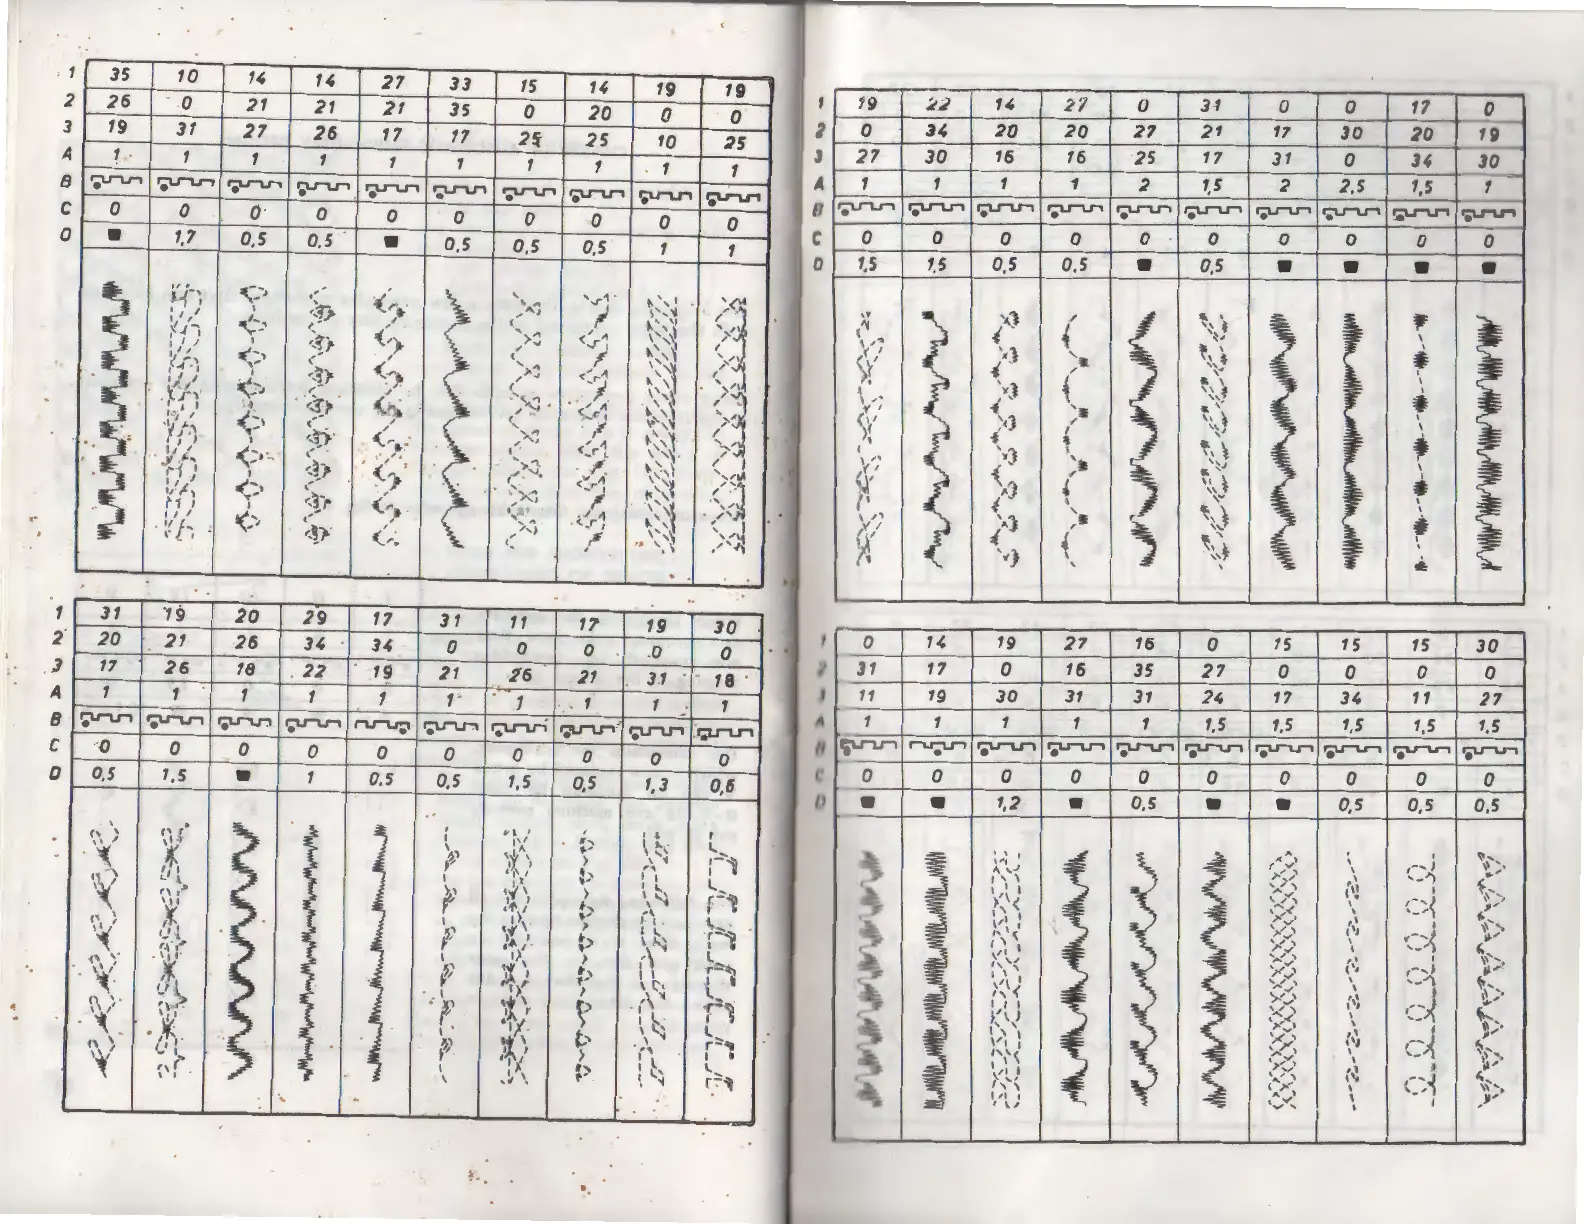 1 35 10 14 14 27 33 15 14 19 19
2 26 0 21 21 21 35 0 20 0 0
3 19 31 27 26 17 17 25 25 10 25
A 1 1 1 1 1 1 1 1 1 1
B
C 0 0 0 0 0 0 0 0 0 0
D ■ 1,7 0,5 0,5 ■ 0,5 0,5 0,5 1 1
1 31 19 20 29 17 31 11 17 19 30
2 20 21 26 34 34 0 0 0 0 0
3 17 26 18 22 19 21 26 21 31 18
A 1 1 1 1 1 1 1 1 1 1
B
C 0 0 0 0 0 0 0 0 0 0
D 0,5 1,5 ■ 1 0,5 0,5 1,5 0,5 1,3 0,6
1 19 22 14 27 0 31 0 0 17 0
2 0 34 20 20 27 21 17 30 20 19
3 27 30 16 16 25 17 31 0 34 30
A 1 1 1 1 2 1,5 2 2,5 1,5 1
B
C 0 0 0 0 0 0 0 0 0 0
D 1,5 1,5 0,5 0,5 ■ 0,5 ■ ■ ■ ■
1 0 14 19 27 16 0 15 15 15 30
2 31 17 0 16 35 27 0 0 0 0
3 11 19 30 31 31 24 17 34 11 27
A 1 1 1 1 1 1,5 1,5 1,5 1,5 1,5
B
C 0 0 0 0 0 0 0 0 0 0
D ■ ■ 1,2 ■ 0,5 ■ ■ 0,5 0,5 0,5